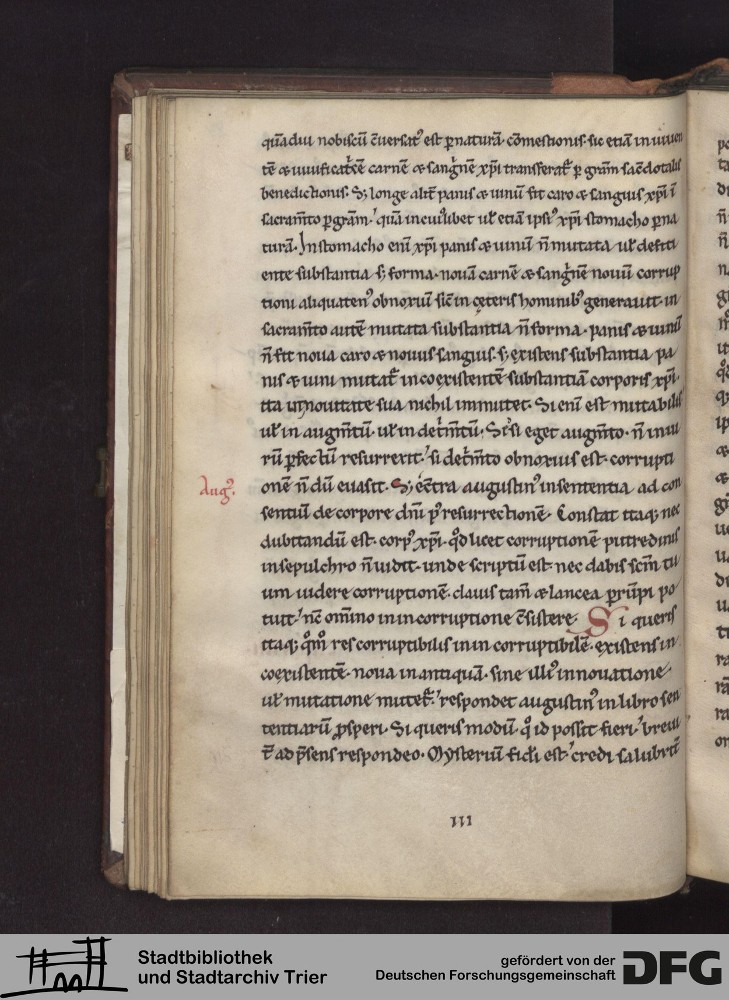 quādiu nobiscū c̄uersat᷒ est ꝑ naturā. comestionis. sic etiā in uiuen
tē & uiuificatͥcē carnē & sangͥnē xp̄i transferat᷑ ꝑ gr̄am sac̄dotalis
benedictionis. S; longe alit̄ panis & uinū fit caro & sanguis xp̄i ī
sacram̄to ꝑ gr̄am. quā in cuiuſlibet ul̄ etiā ipsi᷒ xp̄i stomacho ꝑ na
turā. In stomacho enī xp̄i panis & uinū n̄ mutata ul̄ defici
ente substantia s; forma. nouā carnē & sangͥnē nouū corrup
tioni aliquaten᷒ obnoxiū sic̄ in cęteris hominib᷒ generauit. in
sacram̄to autē mutata substantia n̄ forma. panis & uinū
n̄ fit noua caro & nouus sanguis. s; existens substantia pa
nis & uini mutat᷑ in coexistentē substantiā corporis xp̄i.
ita ut nouitate sua nichil immutet. Si enī est mutabilis
ul̄ in augm̄tū. ul̄ in det͛m̄tū. Si si eget augm̄to. n̄ in ui
rū ꝑfectū resurrexit. si det͛m̄to obnoxius est. corrupti
onē n̄ dū euasit. S; ec̄tra augustin᷒ in sententia ad con
Aug᷒.
sentiū de corpore dn̄i p᷒ resurrectionē. Constat itaq; nec
dubitandū est. corp᷒ xp̄i. qd̄ licet corruptionē putredinis
in sepulchro n̄ uidit. unde scriptū est. nec dabis sc̄m tu
um uidere corruptionē. clauis tam̄ & lancea ꝑrūpi po
tuit. nc̄ omīno in incorruptione c̄sistere. Si queris
itaq; qͦm̄ res corruptibilis in incorruptibilē. existens in
coexistentē. noua in antiquā. sine illi᷒ innouatione.
ul̄ mutatione mutet᷑. respondet augustin᷒ in libro sen
tentiarū ꝓsperi. Si queris modū qͦ id possit fieri. breui
t̄ ad p̄sens respondeo. Mysteriū fidi est. credi salubrit̄
III
Stadtbibliothek
und Stadtarchiv Trier
gefördert von der
Deutschen Forschungsgemeinschaft
DFG